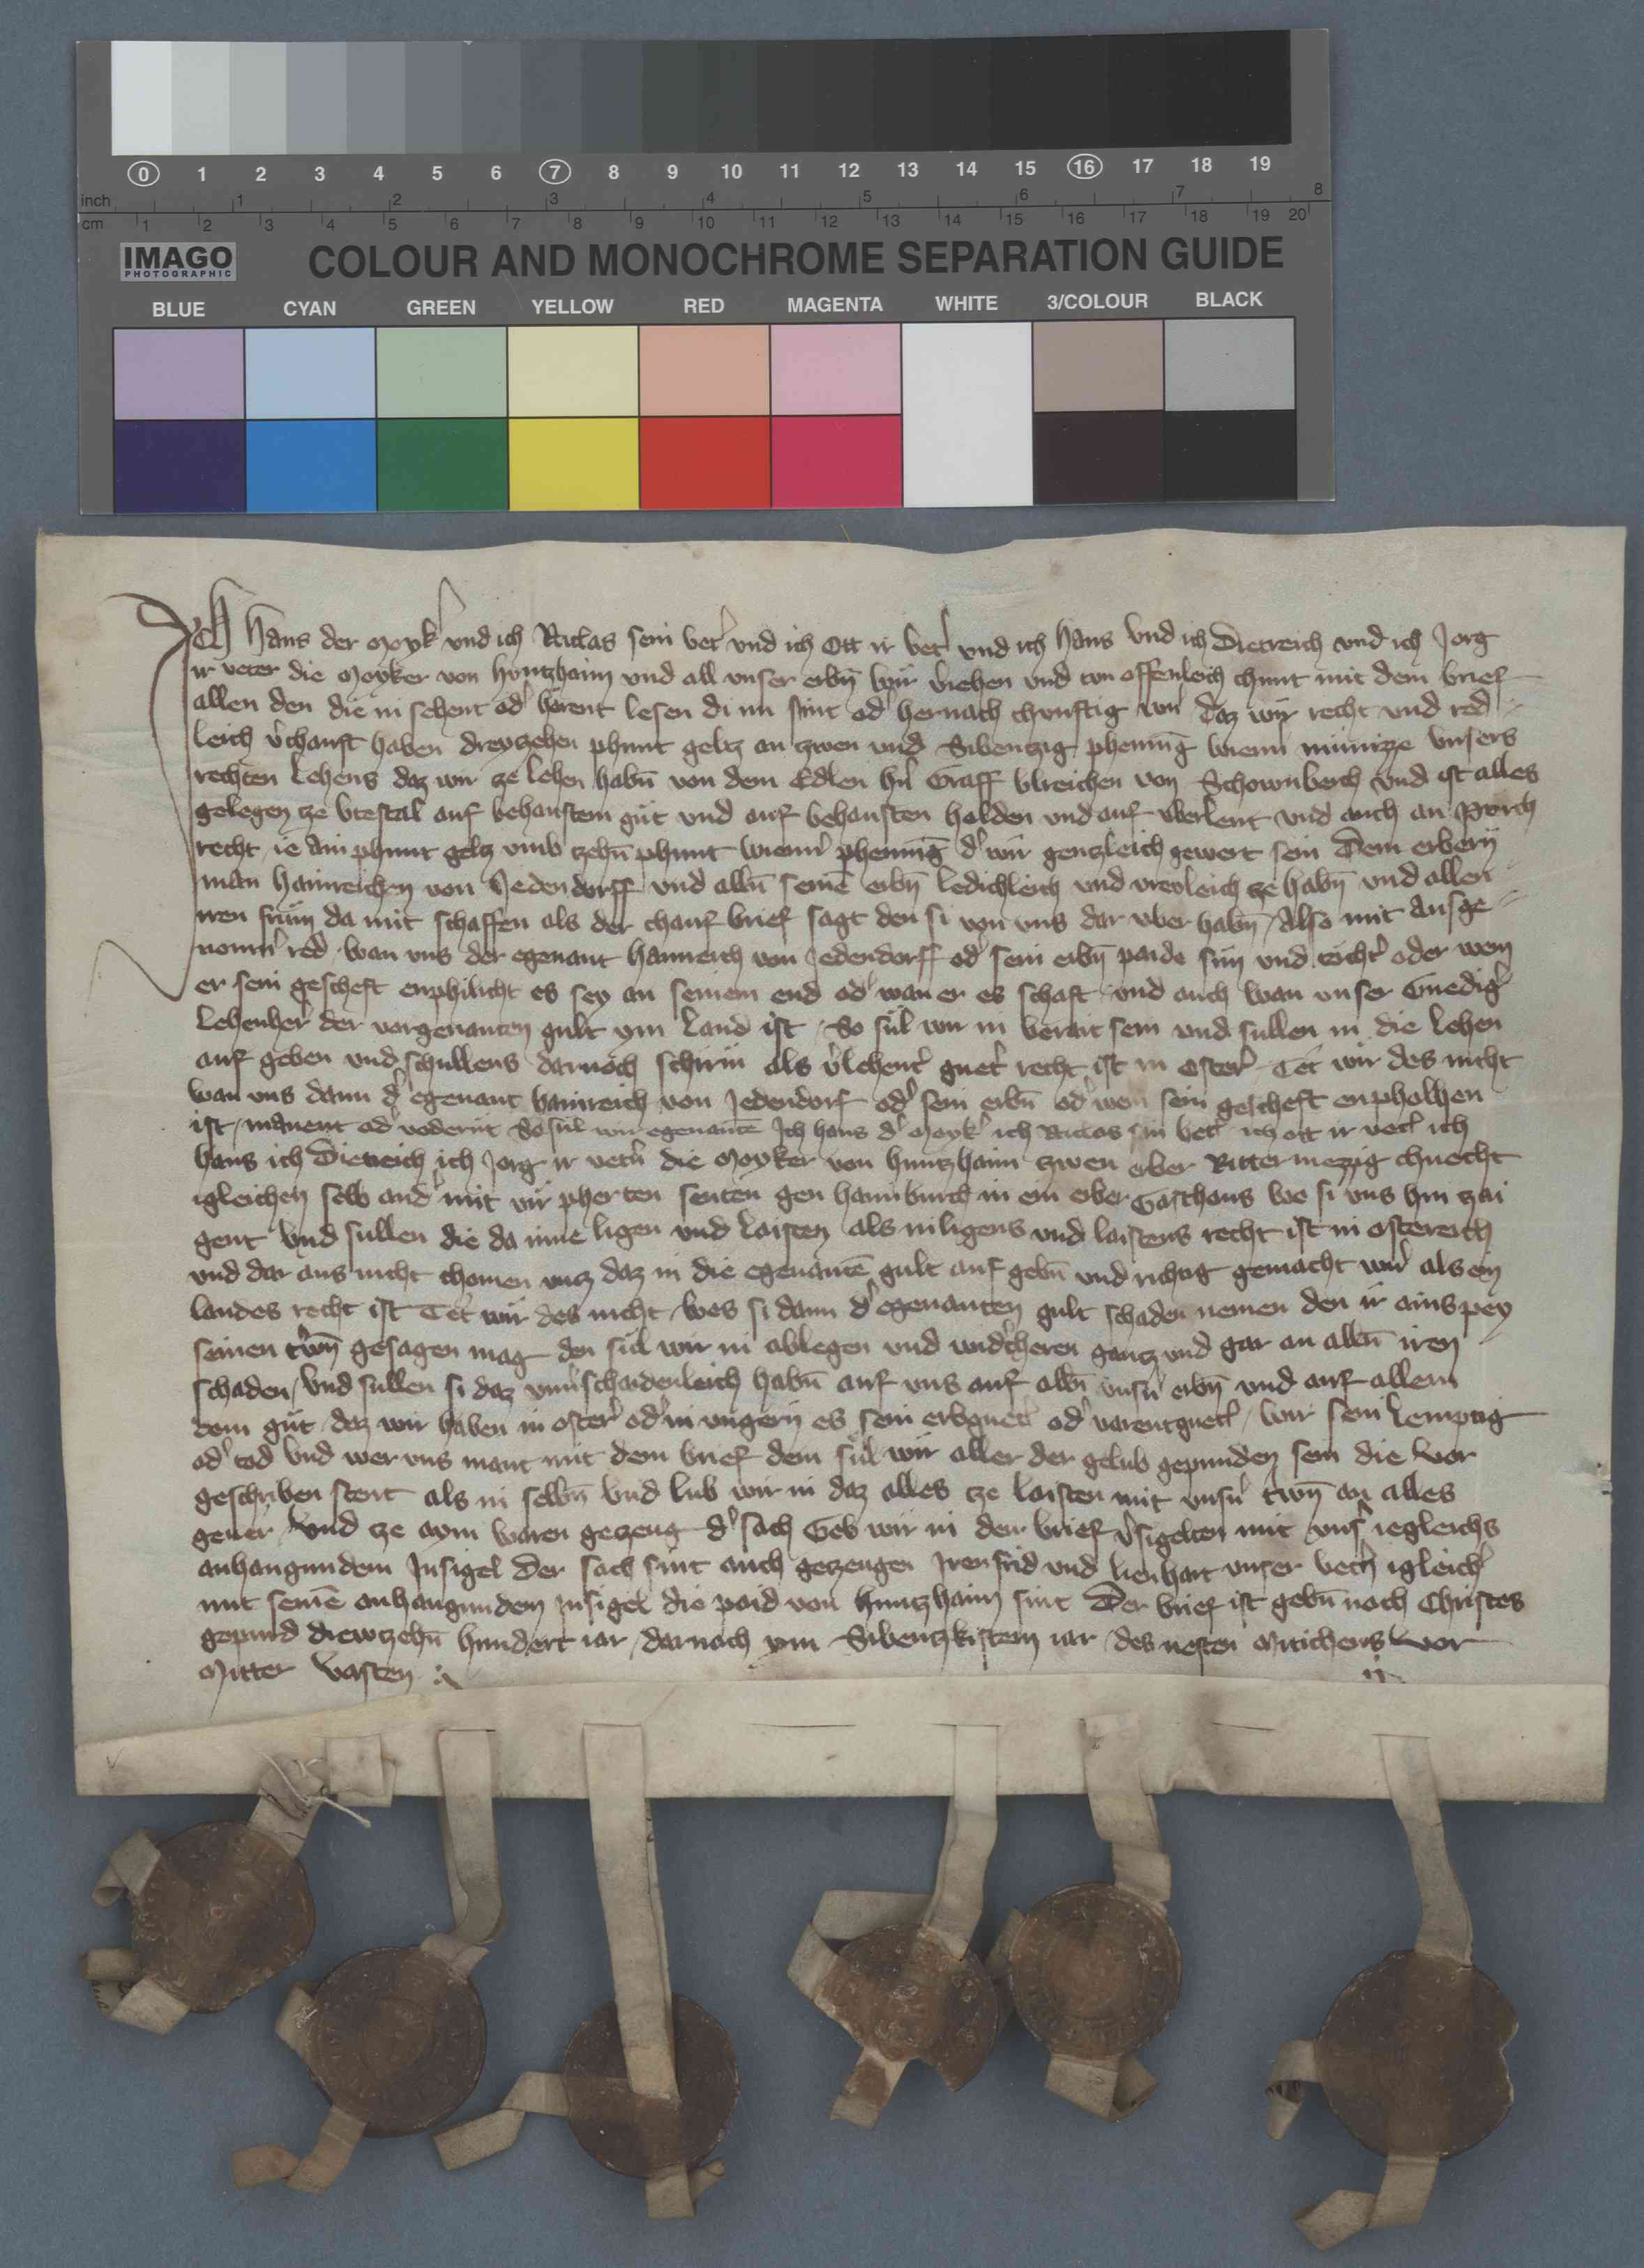 0 1 2 3 4 5 6 7 8 9 10 11 12 13 14 15 16 17 18 19
inch 1 2 3 4 5 6 7 8
cm 1 2 3 4 5 6 7 8 9 10 11 12 13 14 15 16 17 18 19 20
IMAGO
PHOTOGRAPHIC
COLOUR AND MONOCHROME SEPARATION GUIDE
BLUE CYAN GREEN YELLOW RED MAGENTA WHITE 3/COLOUR BLACK
Ich hans der Moyk' vnd ich Niclas sein vet' vnd ich Ott ir vet' vnd ich hans vnd ich Dietreich vnd ich Jorg
ir veter die Moyker von huntzhaim vnd all vnser erbn̄ wir v'iehen vnd tun offenleich chunt mit dem brief
allen den die in sehent od' horent lesen di nu sint od' hernach chunftig daz wir recht vnd red
leich v'chauft haben dreyzehen phunt geltz an zwen vnd Sibentzig pheninḡ wienn' münizze vnsers
rechten lehens daz wir ze lehen habn̄ von dem Edlen h'n Graff vlreichen von Schownberch vnd ist alles
gelegen ze vtestal auf behaustem güt vnd auf behausten holden vnd auf vberlent vnd auch an perch
recht ie ain phunt geltz vmb zehn̄ phunt wienn' pheninḡ d' wir genczleich gewert sein Dem erbern
man hainreichen von Jedendorff vnd alln̄ seinē erbn̄ ledichleich vnd vreyleich ze habn̄ vnd allen
iren frum da mit schaffen als der chauf brief sagt den si von vns dar vber habn̄ Also mit ausge
nomn' red wan vns der egenant hainreich von Jedendorff od' sein erbn̄ paide sün vnd tocht' oder wem
er sein gescheft enphilicht es sey an seinem end od' wan er es schaft vnd auch wan vnser Gnedig'
lehenher' der vorgenanten gult ym land ist So sül wir in berait sein vnd sullen in die lehen
auf geben vnd schullens darnach schirm als v'lehent' guet' recht ist in oster' Tet wir des nicht
wan vns dann d' egenant hainreich von Jedendorf od' sein erbn̄ od' wem sein gescheft enpholhen
ist manent od' vodernt So sul wir egenantē Ich hans d' Moyk' ich Niclas sin vet' ich ott ir vet' ich
hans ich Dietreich ich Jorg ir vet'n die Moyker von huntzhaim zwen erber Rittermezzig chnecht
igleichen selb and' mit vir pherten senten gen hainburch in ein erber Gasthaus wo si vns hin zai
gent vnd sullen die da inne ligen vnd laisten als inligens vnd laistens recht ist in ostereich
vnd dar aus nicht chomen vncz daz in die egenantē gult auf gebn̄ vnd richtig gemacht wir' als ein
landes recht ist Tet wir des nicht wes si dann d' egenanten gult schaden nemen den ir ains pey
seinen trwn̄ gesagen mag den sül wir in ablegen vnd wid'cheren gantz vnd gar an alln̄ iren
schaden vnd sullen si daz vnu'schaidenleich habn̄ auf vns auf alln̄ vnsn' erbn̄ vnd auf allem
dem güt daz wir haben in oster' od' in vngern es sein erbguet' od' varentguet' wir sein lemptig
od' tod vnd wer vns mant mit dem brief dem sül wir aller der gelub gepunden sein die vor
geschriben stent als in selbn̄ vnd lub wir in daz alles ze laisten mit vnsn' trwn̄ an alles
geuer vnd ze aym waren gezeug d' sach Geb wir in den brief v'sigelten mit vns' iegleichs
anhangundem Insigel Der sach sint auch gezeugen Irenfrid vnd lienhart vnser vet'n igleich'
mit seinē anhangunden Insigel die paid von huntzhaim sint Der brief ist gebn̄ nach Christes
gepurd drewczehn̄ hundert iar darnach ym Sibentzkistem iar des nesten Mitichens vor
Mitter vasten